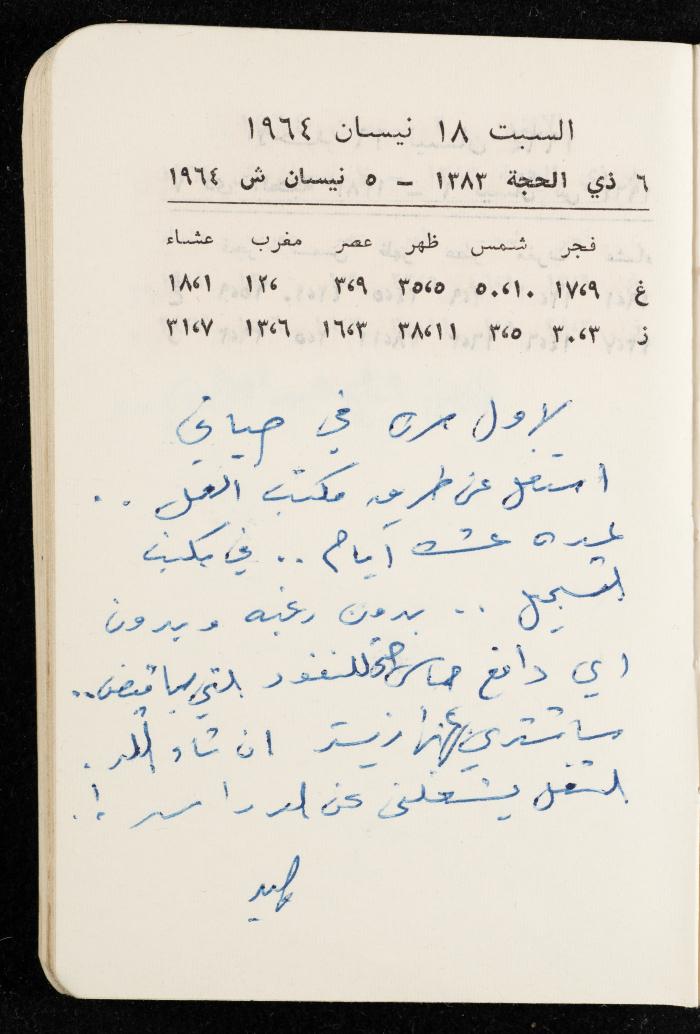 السبت ١٨ نيسان ١٩٦٤
٦ ذي الحجة ١٣٨٣ – ٥ نيسان ش ١٩٦٤
فجر شمس ظهر عصر مغرب عشاء
غ ١٧،٩ ٥٠،١٠ ٣٥،٥ ٣،٩ ١٢، ١٨،١
ز ٣٠،٣ ٣،٥ ٣٨،١١ ١٦،٣ ١٣،٦ ٣١،٧
لاول مرة في حياتي
اشتغل عن طريق مكتب العمل ..
لمدة عشرة أيام .. في مكتب
التسجيل .. بدون رغبه وبدون
اي دافع حماس للنقود التي سأقبض ..
سأشتري ترانزيستر ان شاء الله .
الشغل يشغلني عن الدراسه !.